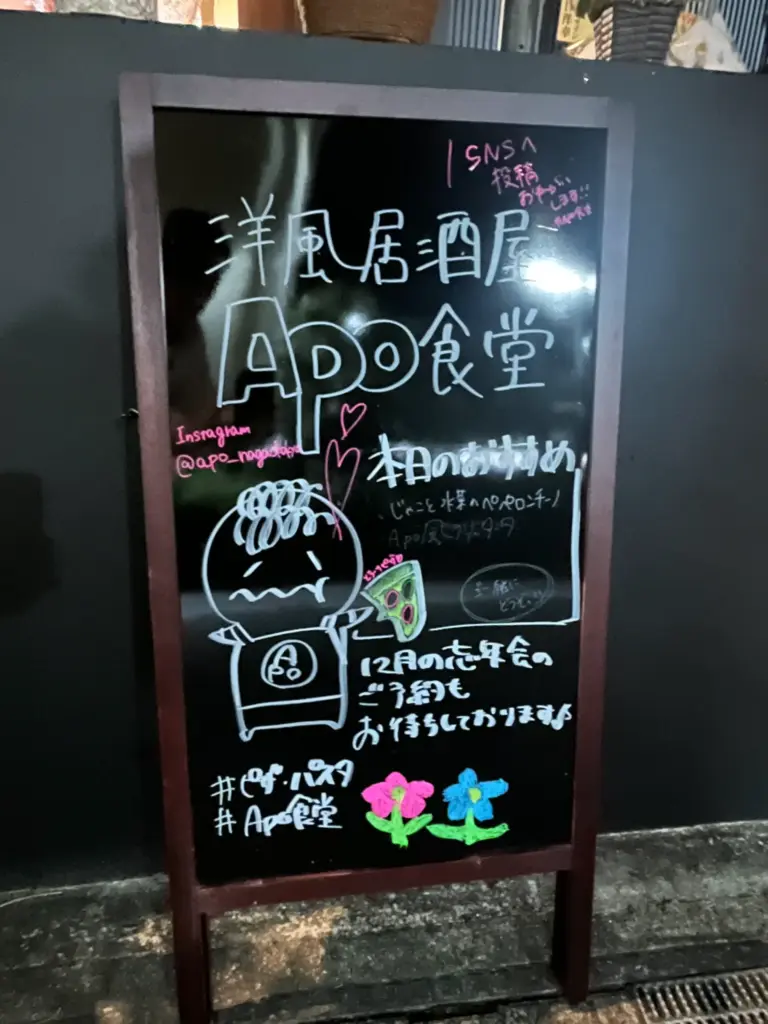 SNSへ
投稿
おねがい
します!!
洋風居酒屋
Apo食堂
Instagram
本日のおすすめ
じゃこと水菜のペペロンチーノ
Apo風
一緒に
どうぞ!!
Apo
12月の忘年会の
ご予約も
お待ちしております♪
#ピザ・パスタ
#Apo食堂